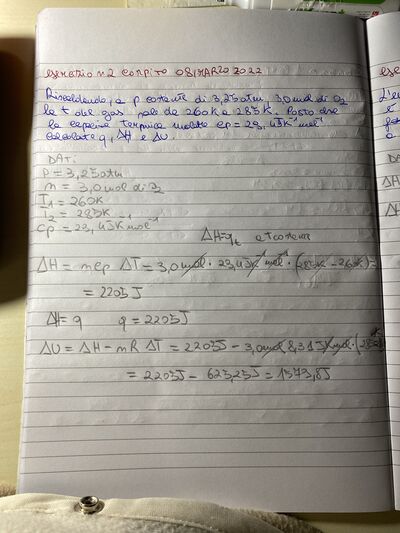 esercizio n2 compito 08 MARZO 2022
Riscaldando, a p costante di 3,25atm, 3,0mol di O2
la t del gas sale da 260K a 285K. Posto che
la capacità termica molare cp = 29,4JK⁻¹mol⁻¹
calcolate q, ΔH e ΔU.
DATI:
P = 3,25atm
n = 3,0mol di O2
T1 = 260K
T2 = 285K
cp = 29,4JK⁻¹mol⁻¹
ΔH = n cp ΔT = 3,0mol · 29,4JK⁻¹mol⁻¹ · (285K - 260K) =
= 2205J
ΔH = q q = 2205J
ΔU = ΔH - nR ΔT = 2205J - 3,0mol 8,31JKmol · (285K
= 2205J - 623,25J = 1573,8J